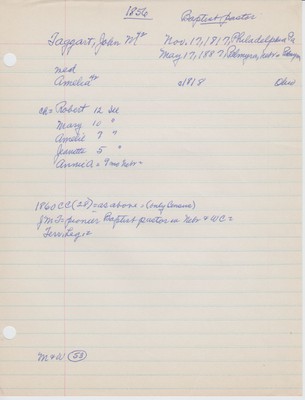 1856 Baptist pastor
Taggart, John M Nov. 17, 1817, Philadelphia Pa
May 17, 1887, Palmyra, Nebr =
med
Amelia c1818 Ohio
ch = Robert 12 Ill
Mary 10 "
Amelie 7 "
Jeanette 5 "
Annie A = 9 mo Nebr =
1860 CC (28) = as above = (only Census)
JMT = pioneer Baptist pastor in Nebr & WC =
Terr. Leg =
M & W (58)